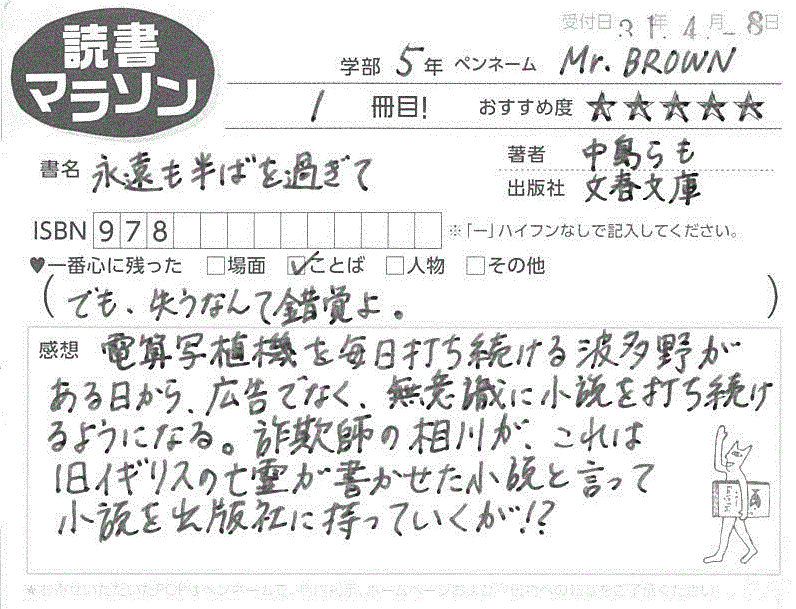 読書
マラソン
受付日 31年 4月 -8日
学部 5年 ペンネーム Mr. BROWN
1 冊目! おすすめ度 ★★★★★
書名 永遠も半ばを過ぎて
著者 中島らも
出版社 文春文庫
ISBN 978 ※「ー」ハイフンなしで記入してください。
♥一番心に残った □場面 ☑ことば □人物 □その他
(でも、失うなんて錯覚よ。)
感想 電算写植機を毎日打ち続ける波多野が
ある日から、広告でなく、無意識に小説を打ち続け
るようになる。詐欺師の相川が、これは
旧イギリスの亡霊が書かせた小説と言って
小説を出版社に持っていくが!?